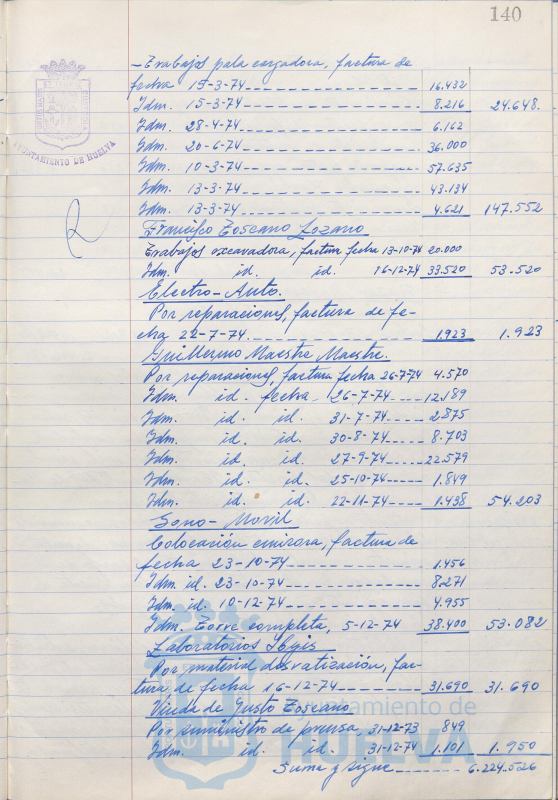 140
AYUNTAMIENTO DE HUELVA
- Trabajos pala cargadora, factura de
fecha 15-3-74 16.432
Idm. 15-3-74 8.216 24.648.
Idm. 28-4-74 6.162
Idm. 20-6-74 36.000
Idm. 10-3-74 57.635
Idm. 13-3-74 43.134
Idm. 13-3-74 4.621 147.552
Francisco Toscano Lozano
Trabajos excavadora, factura fecha 13-10-74 20.000
Idm. id. id. 16-12-74 33.520 53.520
Electro-Auto.
Por reparaciones, factura de fe-
cha 22-7-74 1.923 1.923
Guillermo Maestre Maestre.
Por reparaciones, factura fecha 26-7-74 4.570
Idm. id. fecha, 26-7-74 12.189
Idm. id. id. 31-7-74 2875
Idm. id. id. 30-8-74 8.703
Idm. id. id. 27-9-74 22.579
Idm. id. id. 25-10-74 1.849
Idm. id. id. 22-11-74 1.438 54.203
Sono-Movil
Colocación emisora, factura de
fecha 23-10-74 1.456
Idm. id. 23-10-74 8.271
Idm. id. 10-12-74 4.955
Idm. Torre completa, 5-12-74 38.400 53.082
Laboratorios Ibys
Por material desratización, fac-
tura de fecha 16-12-74 31.690 31.690
Viuda de Justo Toscano
Por suministro de prensa, 31-12-73 849
Idm. id. id. 31-12-74 1.101 1.950
Suma y sigue 6.224.526
Ayuntamiento de
HUELVA